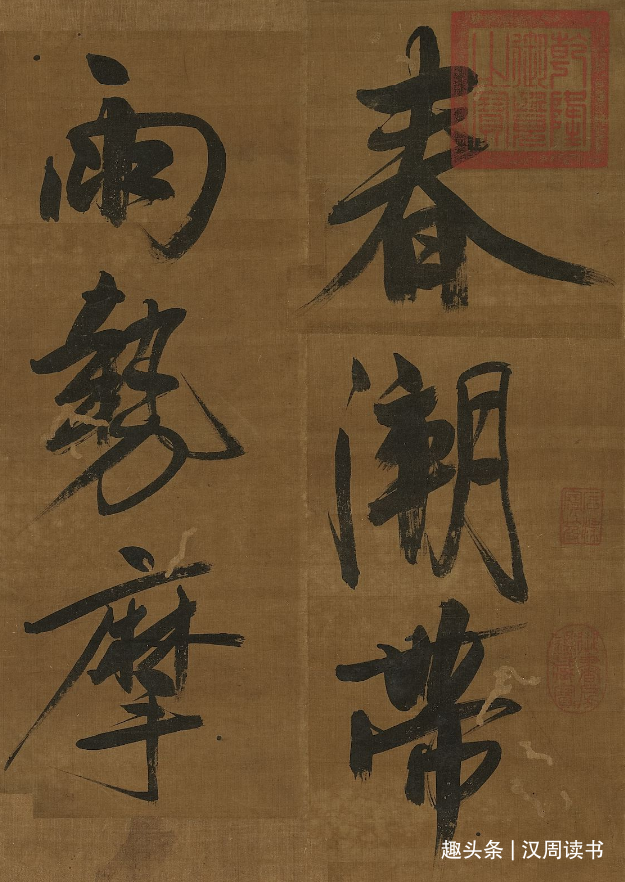 春潮帶
雨勢摩
趣头条 | 汉周读书